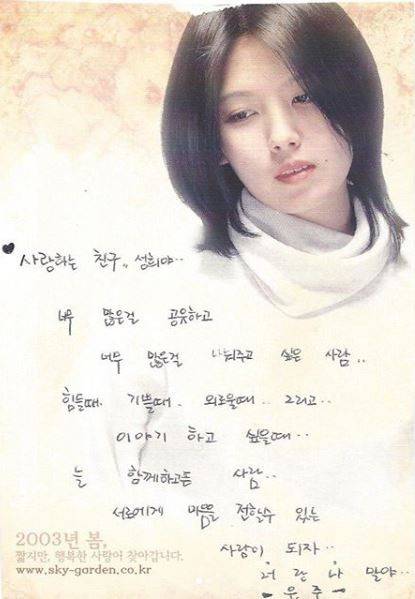 ♥ 사랑하는 친구.. 성희야..
너무 많은걸 공유하고
너무 많은걸 나눠주고 싶은 사람..
힘들때. 기쁠때. 외로울때.. 그리고..
이야기 하고 싶을때..
늘 함께하고픈 사람..
서로에게 마음을 전할수 있는
사람이 되자..
너랑 나 말야..
- 은주 -
2003년 봄,
짧지만, 행복한 사랑이 찾아갑니다.
www.sky-garden.co.kr